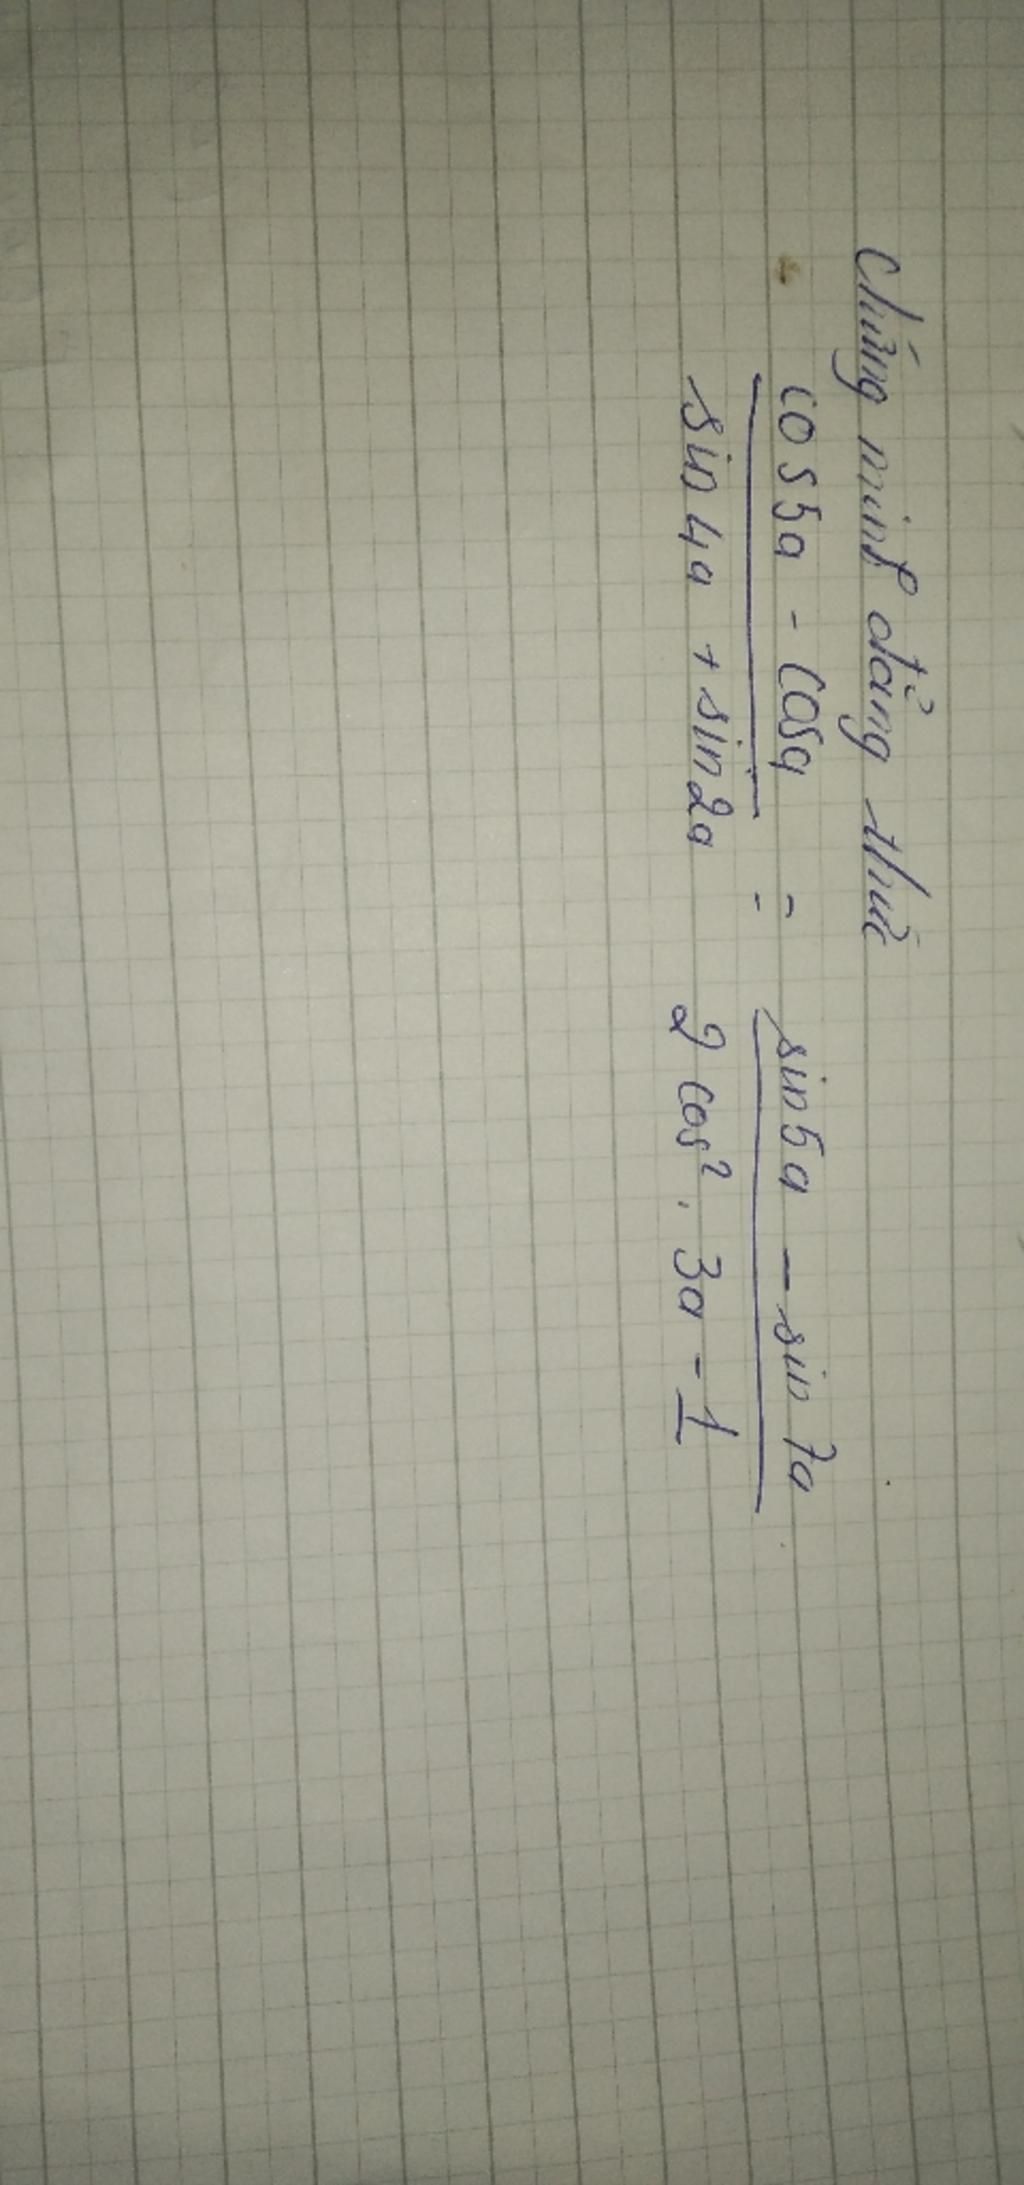 Chứng minh đẳng thức
cos5a - cosa = sin5a - sin7a
sin4a + sin2a 2cos². 3a - 1